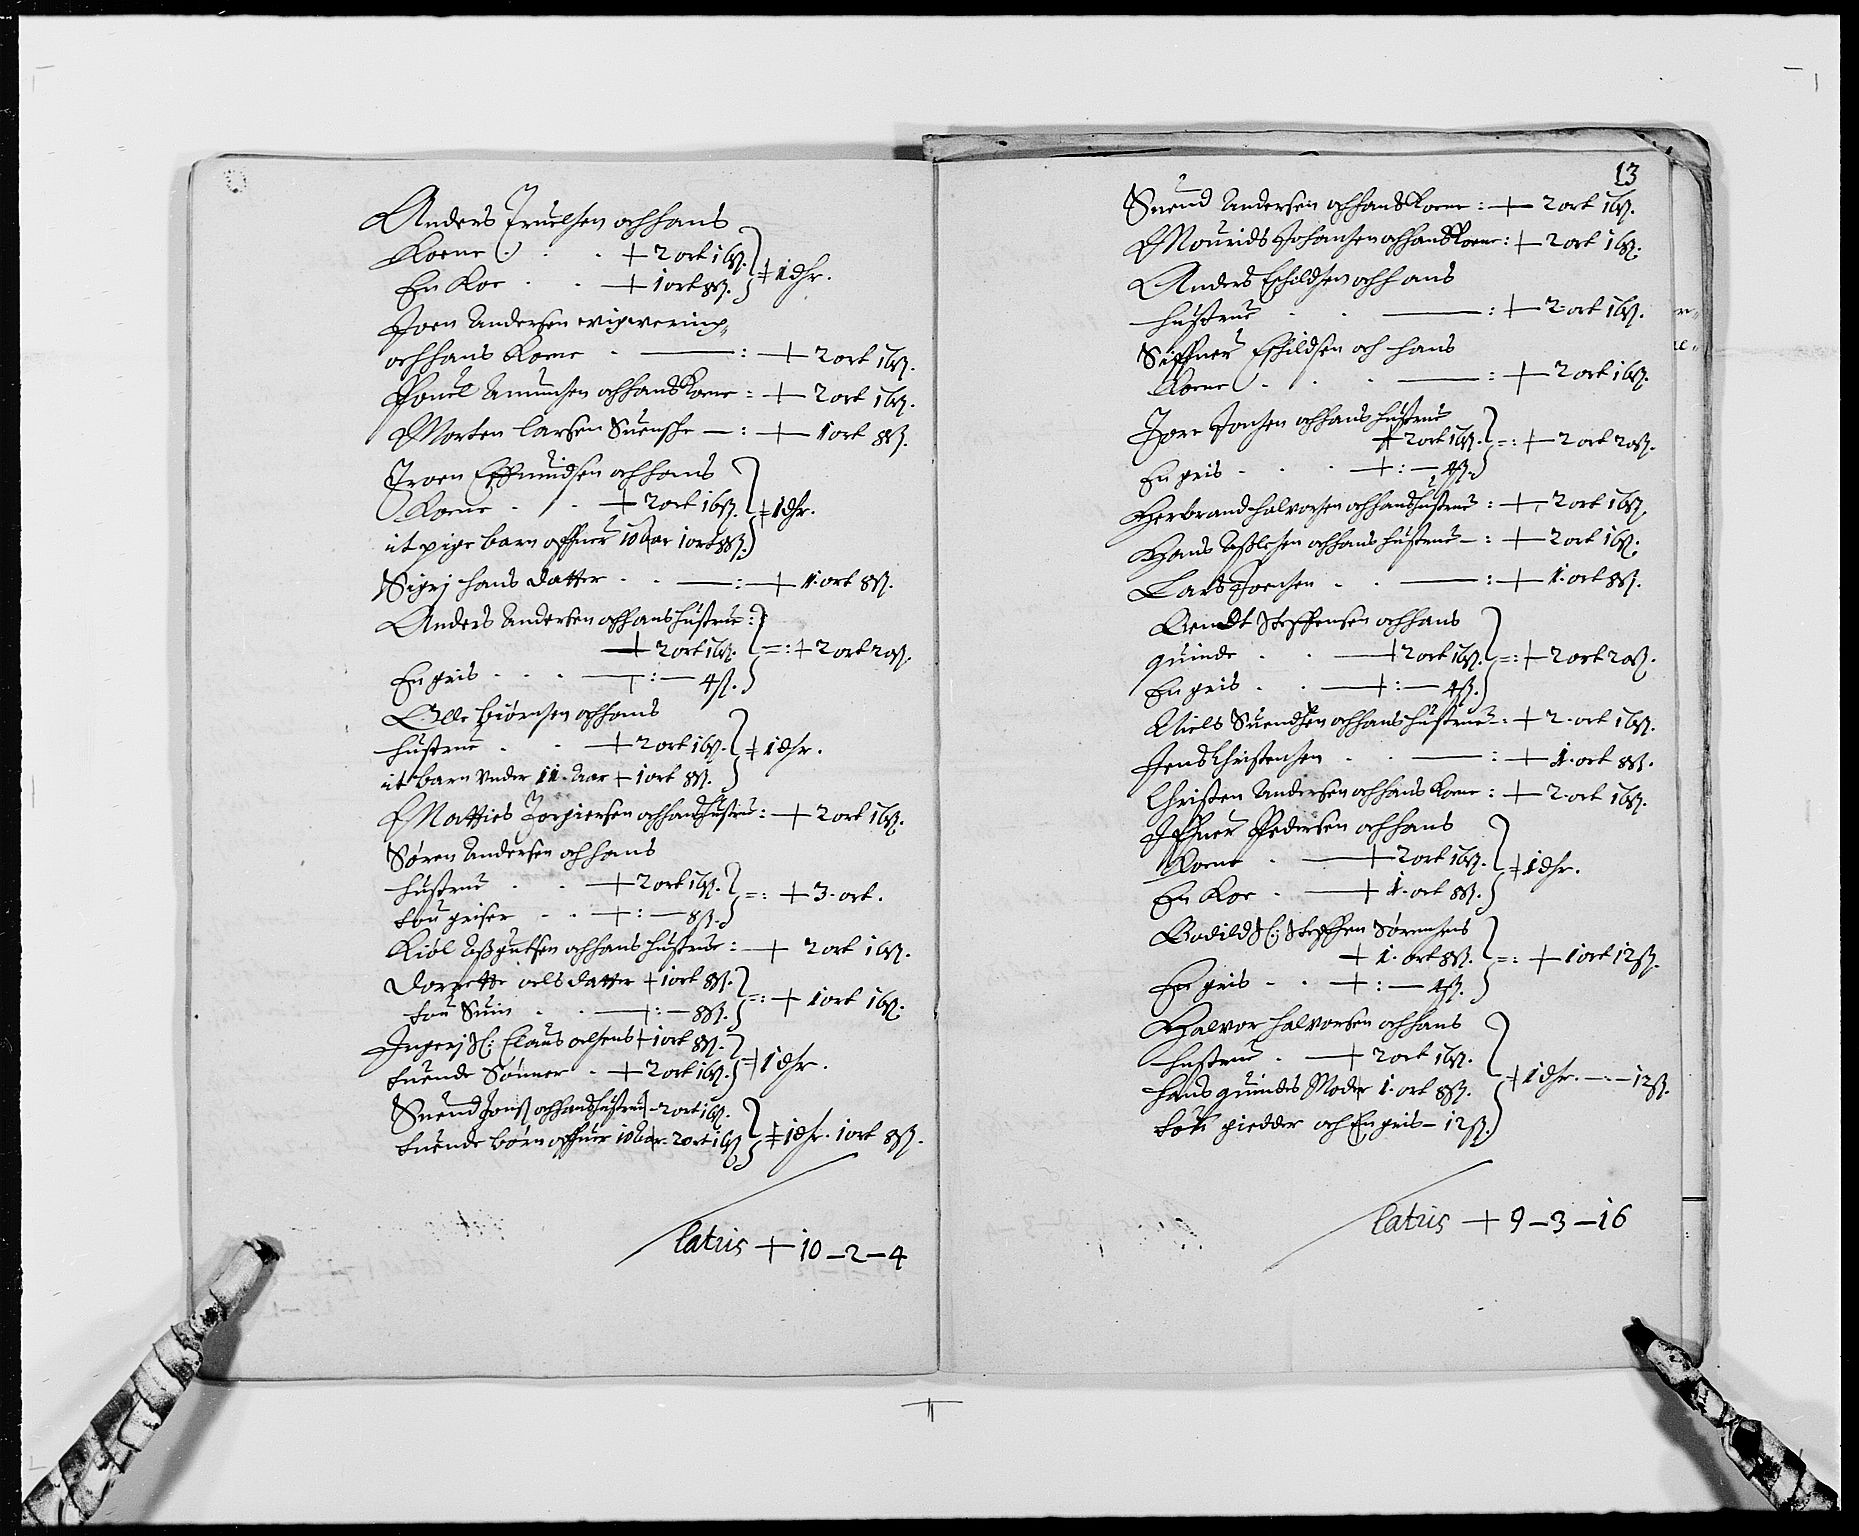 Anders Truelsen och hans
Kone . . + 2 ort 16 ß.
En Koe . . + 1 ort 8 ß. + 1 dlr.
Joen Andersen
och hans Kone . — : + 2 ort 16 ß.
Pouel Amundsen och hans Kone : + 2 ort 16 ß.
Morten Larsen Suenske — : + 1 ort 8 ß.
och hans
Kone . . + 2 ort 16 ß. + 1 dlr.
it pige barn offuer 10 aar 1 ort 8 ß.
Sigrj hans datter . . — : + 1 ort 8 ß.
Anders Andersen och hans hustrue :
+ 2 ort 16 ß. = : + 2 ort 20 ß.
En gris . . . + : — 4 ß.
Olle Biørnsen och hans
hustrue . . + 2 ort 16 ß. + 1 dlr.
it barn vnder 11 Aar + 1 ort 8 ß.
Matties Torgiersen och hans hustru : + 2 ort 16 ß.
Søren Andersen och hans
hustrue . . + 2 ort 16 ß. = : + 3 ort.
tou griser . . + : — 8 ß.
Kiøl Aßgutsen och hans hustrue : + 2 ort 16 ß.
Dorrette oels datter + 1 ort 8 ß. = : + 1 ort 16 ß.
tou Suin . . + : — 8 ß.
Ingerj Sl: Claus oelsens + 1 ort 8 ß. + 1 dlr.
tuende Sønner . + 2 ort 16 ß.
Suend Jonß och hans hustrue + 2 ort 16 ß.
tuende børn offuer 10 aar 2 ort 16 ß + 1 dlr. 1 ort 8 ß.
latus + 10 – 2 – 4
13
Suend Andersen och hans Kone : + 2 ort 16 ß.
Mourids Johansen och hans Kone : + 2 ort 16 ß.
Anders Eschildsen och hans
hustrue . . — : + 2 ort 16 ß.
Eschildsen och hans
Kone . . . — : + 2 ort 16 ß.
Tore Jonsen och hans hustrue
+ 2 ort 16 ß. = : + 2 ort 20 ß.
En gris . . . + : — 4 ß.
Herbrand halvorsen och hans hustrue : + 2 ort 16 ß.
Hans Aßlesen och hans hustrue — : + 2 ort 16 ß.
Lars Joensen . . — : + 1 ort 8 ß.
Bendt Steffensen och hans
quinde . . + 2 ort 16 ß. = : + 2 ort 20 ß.
En gris . . + : — 4 ß.
Niels Suendsen och hans hustrue : + 2 ort 16 ß.
Jens Christensen . . — : + 1 ort 8 ß.
Christen Andersen och hans Kone : + 2 ort 16 ß.
Iffuer Pedersen och hans
Kone . — + 2 ort 16 ß. + 1 dlr.
En Koe . — + 1 ort 8 ß.
Bodild Sl: Steffen Sørensens
+ 1 ort 8 ß. = : + 1 ort 12 ß.
En gris . . + : — 4 ß.
Halvor halvorsen och hans
hustrue . — + 2 ort 16 ß.
hans quindes Moder 1 ort 8 ß. + 1 dlr. — : — 12 ß.
tou giedder och En gris – 12 ß.
latus + 9 – 3 – 16